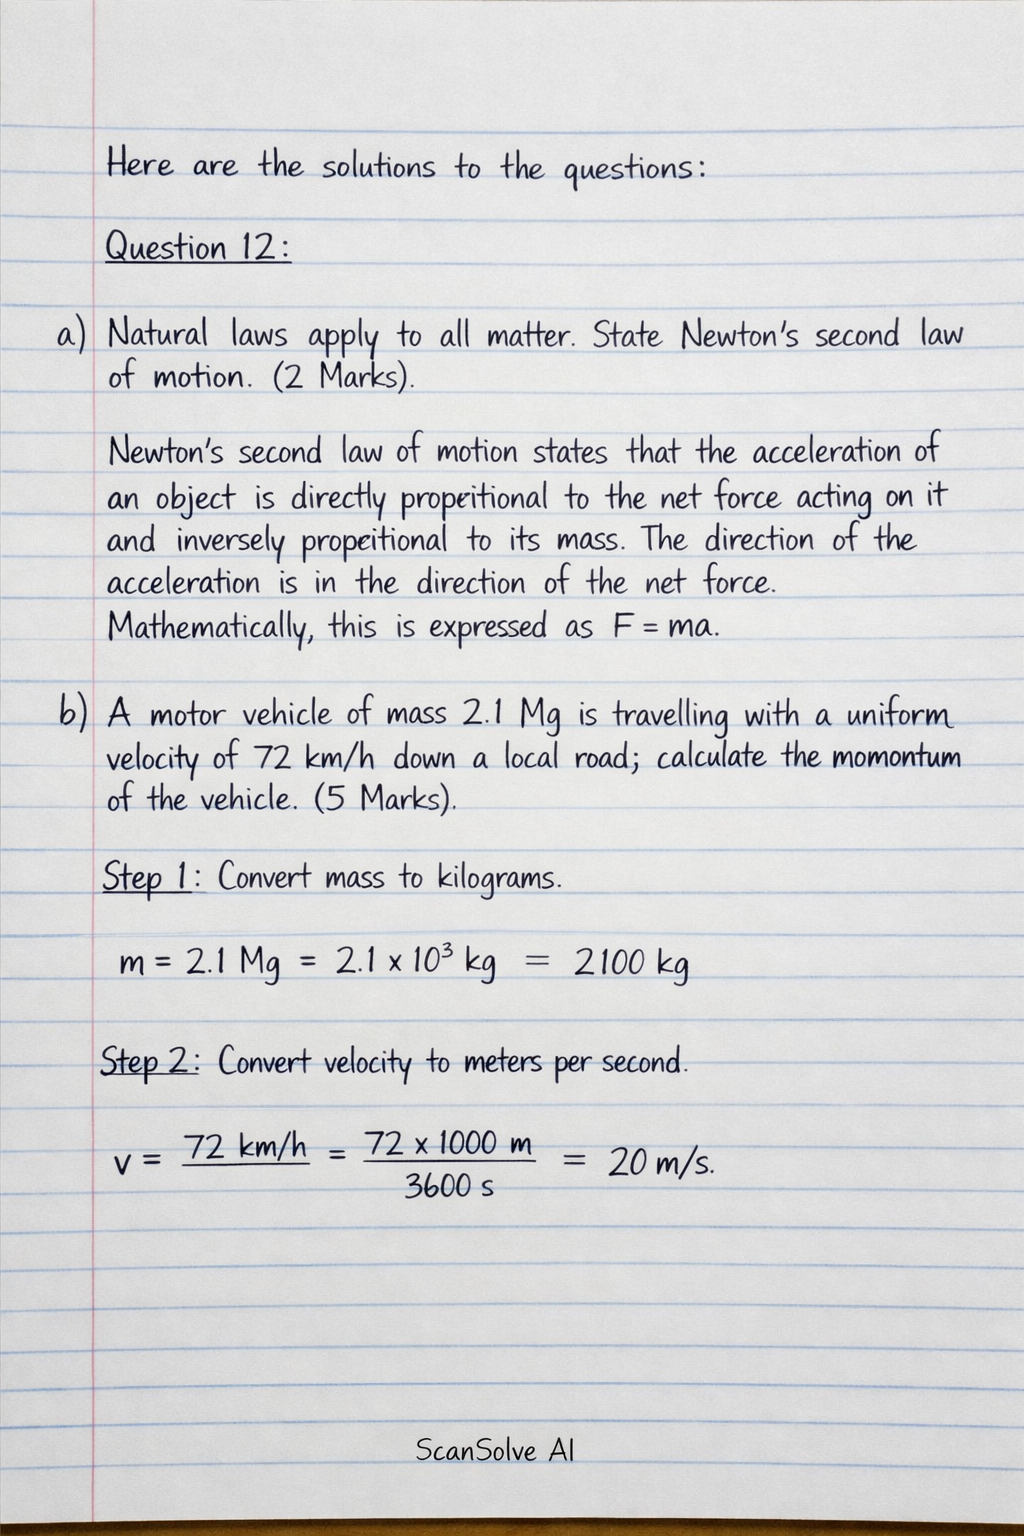 Here are the solutions to the questions:
Question 12:
a) Natural laws apply to all matter. State Newton's second law
of motion. (2 Marks).
Newton's second law of motion states that the acceleration of
an object is directly propeitional to the net force acting on it
and inversely propeitional to its mass. The direction of the
acceleration is in the direction of the net force.
Mathematically, this is expressed as F = ma.
b) A motor vehicle of mass 2.1 Mg is travelling with a uniform
velocity of 72 km/h down a local road; calculate the momontum
of the vehicle. (5 Marks).
Step 1: Convert mass to kilograms.
m = 2.1 Mg = 2.1 x 10³ kg = 2100 kg
Step 2: Convert velocity to meters per second.
v = 72 km/h = 72 x 1000 m / 3600 s = 20 m/s.
ScanSolve AI